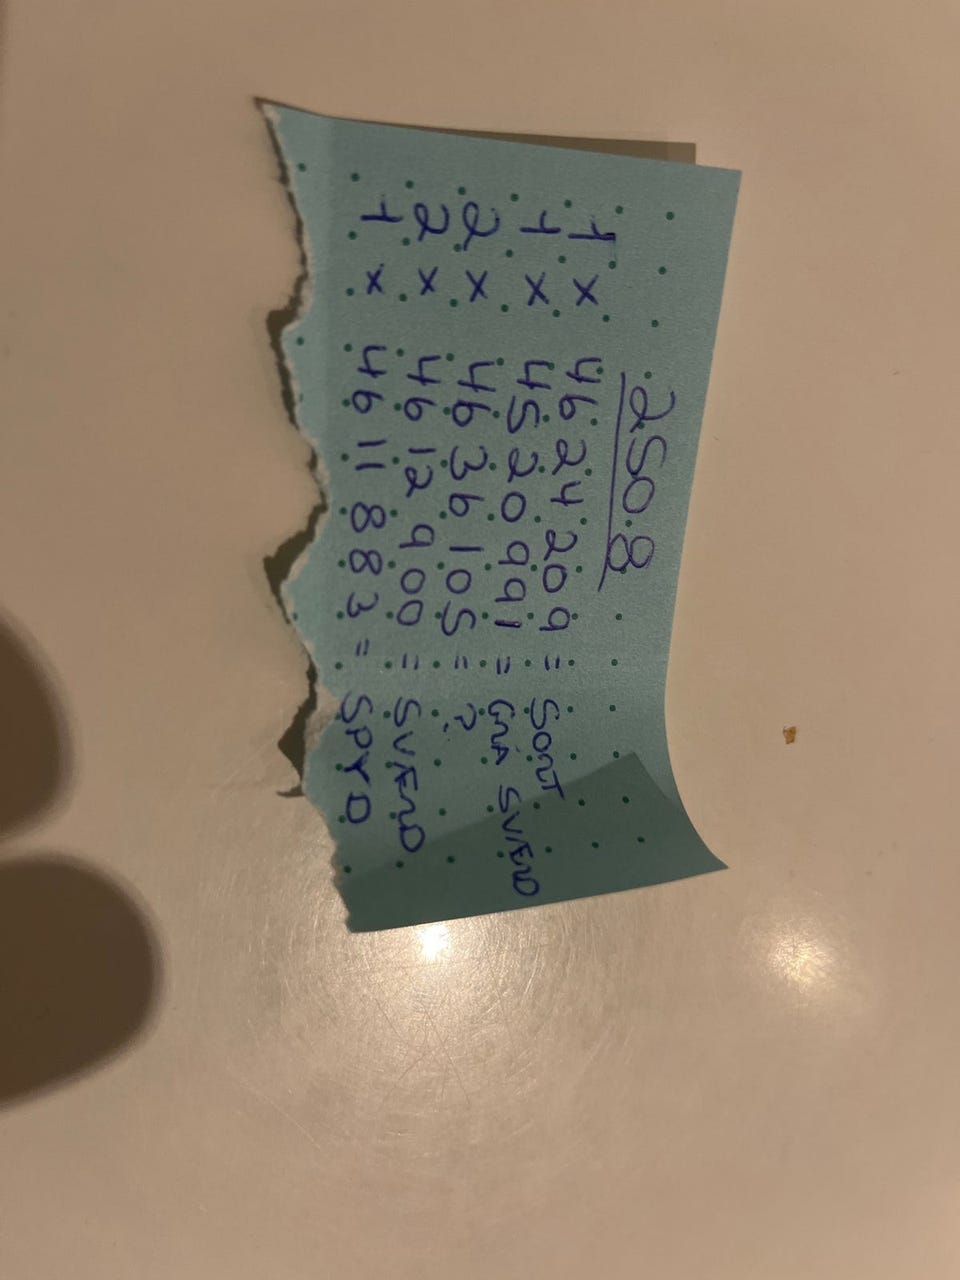 250.8
1 x 4624209 = SORT
1 x 4520991 = GRÅ SVÆRD
2 x 4636105 = ?
2 x 4612900 = SVÆRD
1 x 4611883 = SPYD